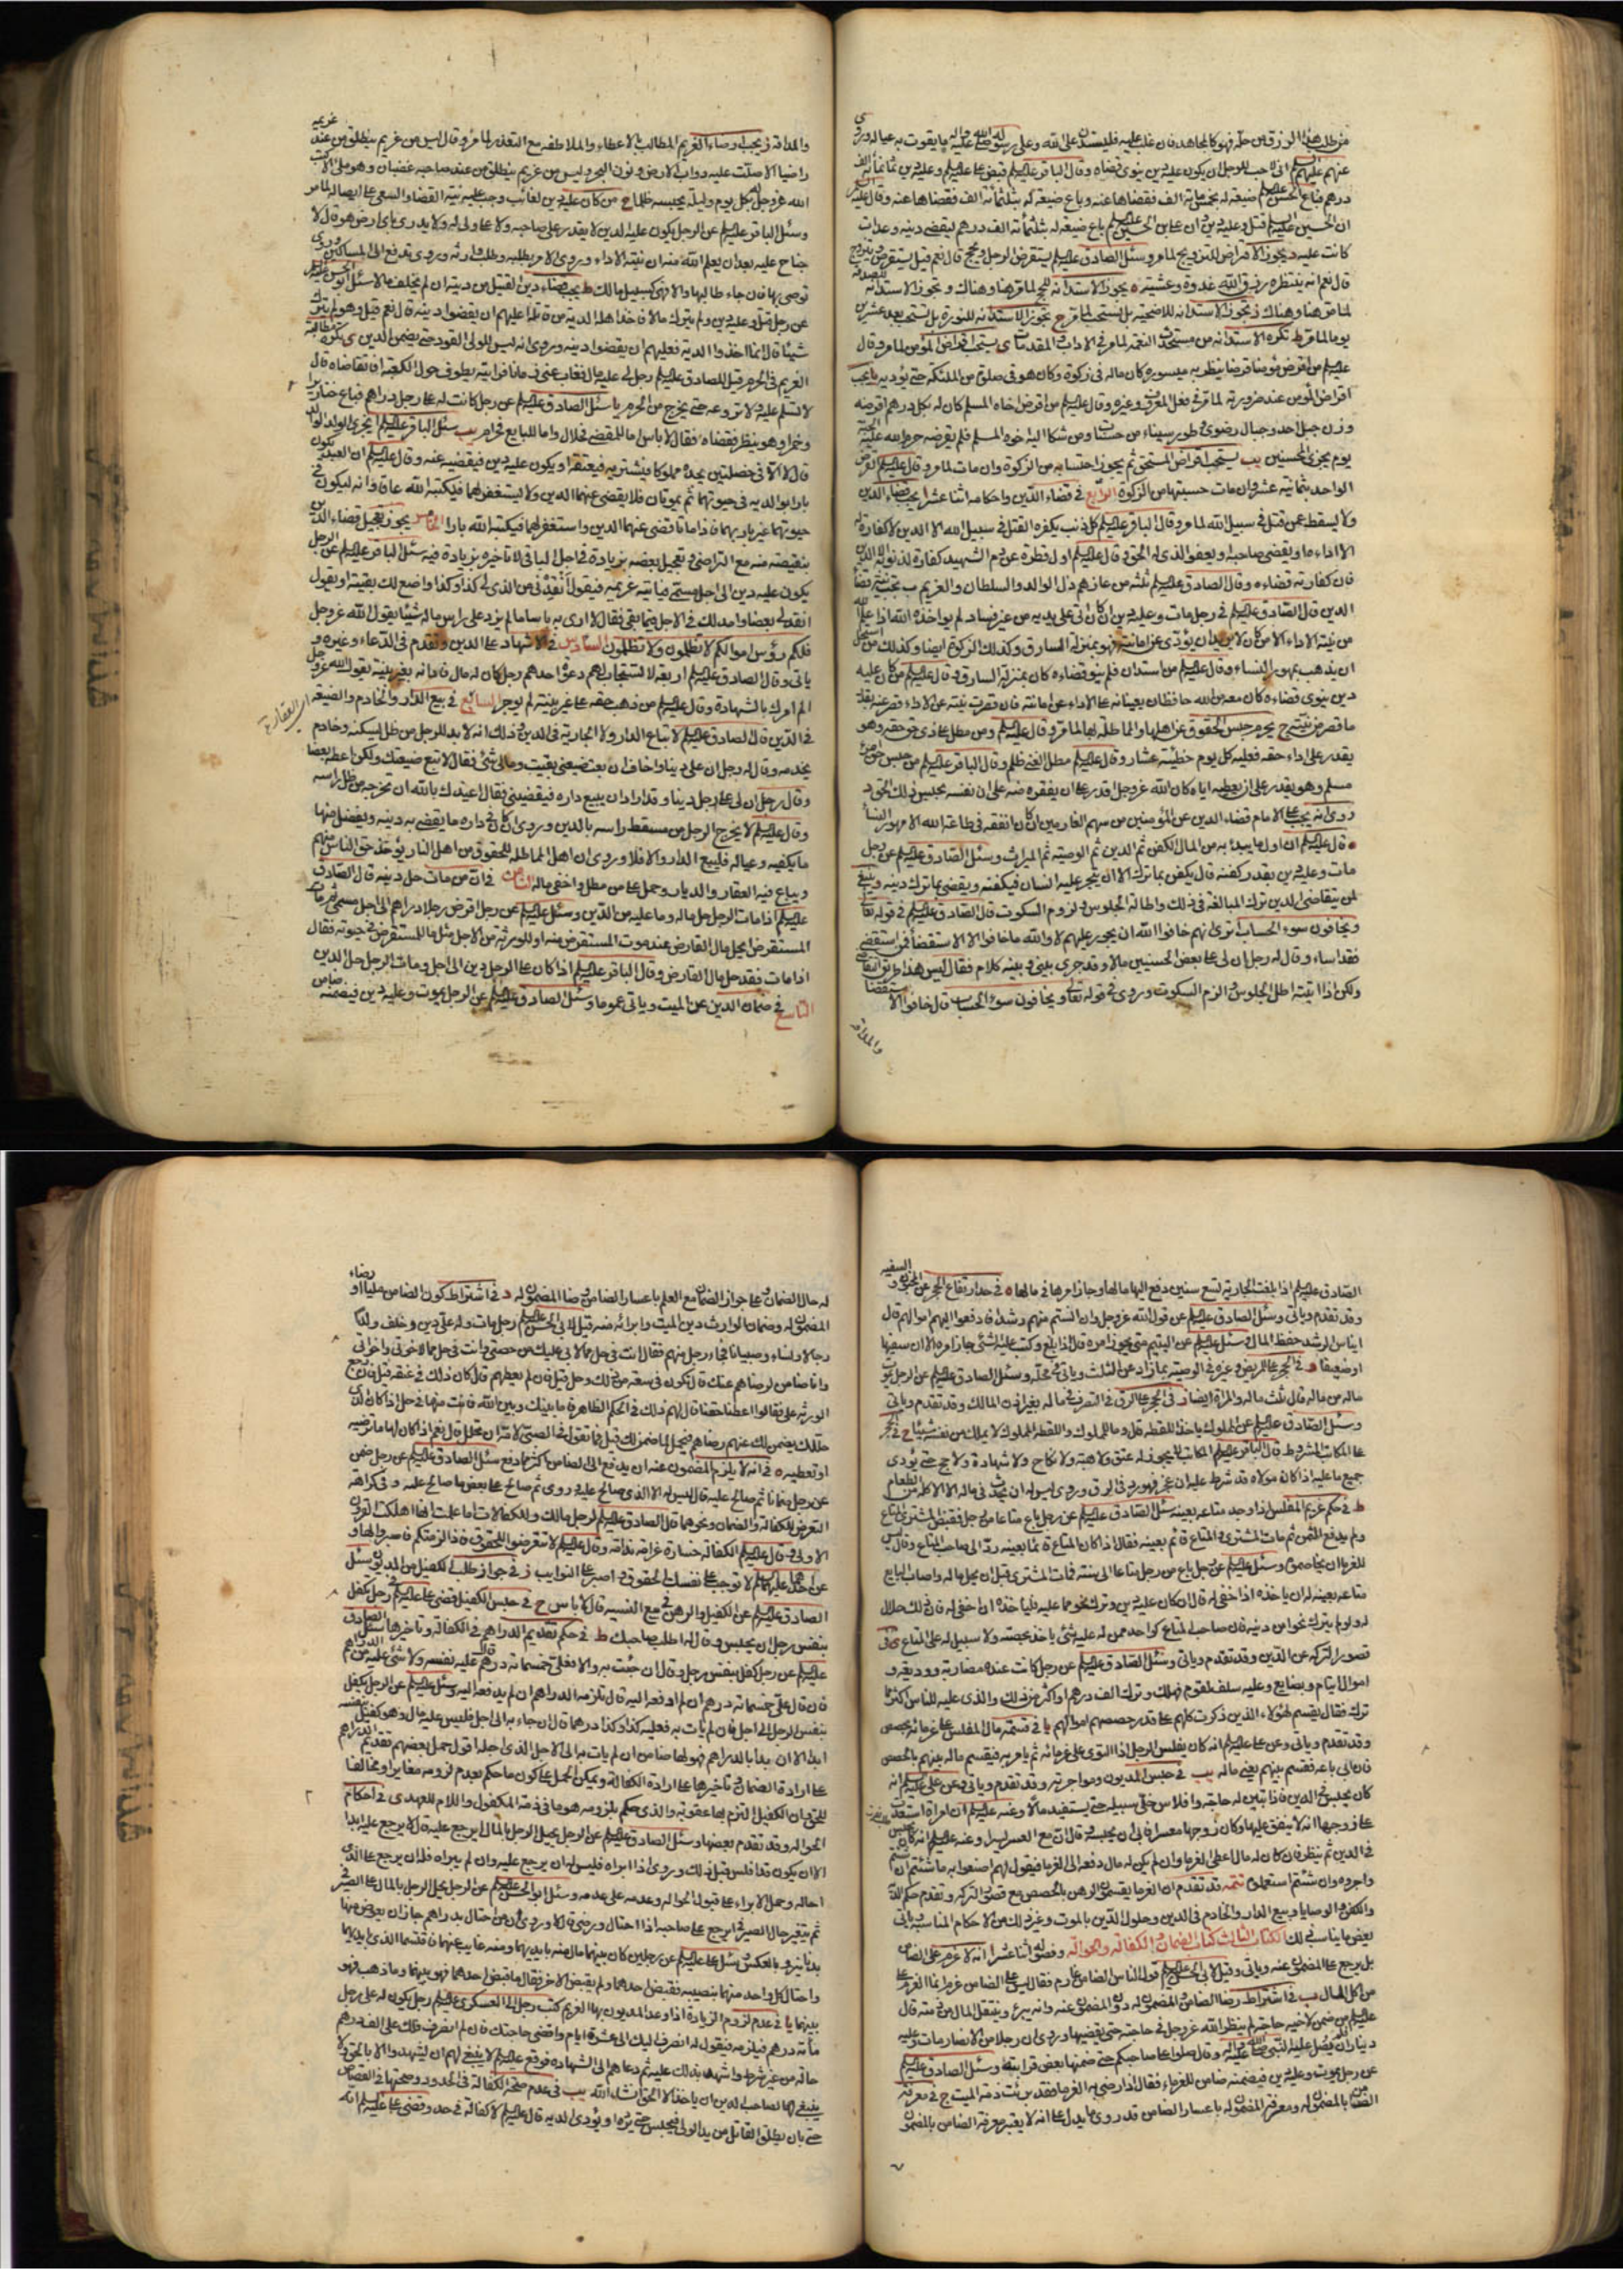 من طلب هذا الرزق من حله فهو كالمجاهد فان غلب عليه فليستدن على الله وعلى رسوله صلى الله عليه وآله ما يقوت به عياله وروى
عنهم عليهم السلام انى لاحب للرجل ان يكون عليه دين ينوى قضاه وقال الباقر عليه السلام قبض على عليه السلام وعليه دين ثمانمائة الف
درهم فباع الحسن عليه السلام ضيعة له بخمسمائة الف فقضاها عنه وباع ضيعة له بثلثمائة الف فقضاها عنه وقال عليه السلام
ان الحسين عليه السلام قتل وعليه دين وان على بن الحسين عليه السلام باع ضيعة له بثلثمائة الف درهم ليقضى دينه وعدات
كانت عليه د يجوز الاقتراض للتزويج لما مر وسئل الصادق عليه السلام يستقرض الرجل ويحج قال نعم قيل يستقرض ويتزوج
قال نعم انه ينتظر رزق الله غدوة وعشية ه يجوز الاستدانة للحج لما مر هنا وهناك و يجوز الاستدانة للصدقة
لما مر هنا وهناك ز يجوز الاستدانة للاضحية بل يستحب لما مر ح يجوز الاستدانة للنورة بل يستحب بعد عشرين
يوما لما مر ط تكره الاستدانة من مستحدث النعمة لما مر فى الاداب والمقدمات ى يستحب اقراض المؤمن لما مر وقال
عليه السلام من اقرض مؤمنا قرضا ينظر به ميسوره كان ماله فى زكوة وكان هو فى صلوة من الملئكة حتى يؤديه يا يجب
اقراض المؤمن عند ضرورته لما مر فى فعل المعروف وغيره وقال عليه السلام من اقرض اخاه المسلم كان له بكل درهم اقرضه
وزن جبل احد وجبال رضوى وطور سيناء من حسنات ومن شكا اليه اخوه المسلم فلم يقرضه حرم الله عليه الجنة
يوم يجزى المحسنين يب يستحب اقراض المستحق ثم يجوز احتسابه من الزكوة وان مات لما مر وقال عليه السلام القرض
الواحد بثمانية عشر وان مات حسبتها من الزكوة الرابع فى قضاء الدين واحكامه اثنا عشر ا يجب قضاء الدين
ولا يسقط عمن قتل فى سبيل الله لما مر وقال الباقر عليه السلام كل ذنب يكفره القتل فى سبيل الله الا الدين لا كفارة له
الا اداءه او يقضى صاحبه او يعفو الذى له الحق وقال عليه السلام اول قطرة من دم الشهيد كفارة لذنوبه الا الدين
فان كفارته قضاءه وقال الصادق عليه السلام ثلثة من عازهم ذل الوالد والسلطان والغريم ب تجب نية قضاء
الدين قال الصادق عليه السلام فى رجل مات وعليه دين ان كان اتى على يديه من غير فساد لم يواخذه الله اذا علم الله
من نيته الاداء الا من كان لا يريد ان يؤدى عن امانته فهو بمنزلة السارق وكذلك الزكوة ايضا وكذلك من استحل
ان يذهب بمهور النساء وقال عليه السلام من استدان فلم ينو قضاءه كان بمنزلة السارق وقال عليه السلام من كان عليه
دين ينوى قضاءه كان معه من الله حافظان يعينانه على الاداء عن امانته فان قصرت نيته عن الاداء قصر عنه بقدر
ما قصر من نيته ج يحرم حبس الحقوق عن اهلها والمماطلة بها لما مر وقال عليه السلام ومن مطل على ذى حق حقه وهو
يقدر على اداء حقه فعليه كل يوم خطيئة عشار وقال عليه السلام مطل الغنى ظلم وقال الباقر عليه السلام من حبس حق امرئ
مسلم وهو يقدر على ان يعطيه اياه كان الله عز وجل اقدر على ان يفقره منه على ان نفسه بحبس ذلك الحق د
روى انه يجب على الامام قضاء الدين عن المؤمنين من سهم الغارمين ان كان انفقه فى طاعة الله الا مهور النساء
ه قال عليه السلام ان اول ما يبدء به من المال الكفن ثم الدين ثم الوصية ثم الميراث وسئل الصادق عليه السلام عن رجل
مات وعليه دين بقدر كفنه قال يكفن بما ترك الا ان يتجر عليه انسان فيكفنه ويقضى بما ترك دينه و ينبغى
لمن يتقاضى الدين ترك المبالغة فى ذلك واطالة الجلوس ولزوم السكوت قال الصادق عليه السلام فى قوله تعالى
ويخافون سوء الحساب ترى انهم خافوا الله ان يجور عليهم لا والله ما خافوا الا الاستقضاء فمن استقضى
فقد اساء وقال له رجل ان لى على بعض الحسنيين مالا وقد جرى بينى وبينه كلام فقال ليس هذا طريق التقاضى
ولكن اذا اتيته اطل الجلوس والزم السكوت وروى فى قوله تعالى ويخافون سوء الحساب قال خافوا الاستقضاء
والمداقة
والمداقة ز يجب ارضاء الغريم المطالب بالاعطاء والملاطفة مع التعذر لما مر وقال ليس من غريم ينطلق من عند غريمه
راضيا الا صلت عليه دواب الارض ونون البحر وليس من غريم ينطلق من عند صاحبه غضبان وهو ملى الا كتب
الله عز وجل بكل يوم وليلة يحبسه ظلما ح من كان عليه دين لغائب وجب عليه نية القضاء والسعى على ايصاله لما مر
وسئل الباقر عليه السلام عن الرجل يكون عليه الدين لا يقدر على صاحبه ولا على ولى له ولا يدرى باى ارض هو قال لا
جناح عليه بعد ان يعلم الله منه ان نيته الاداء وروى الامر بطلبه وطلب وارثه وروى يدفع الى المساكين وروى
توصى بها فان جاء طالبها والا فهى كسبيل مالك ط يجب قضاء دين القتيل من ديته ان لم يخلف مالا سئل ابو الحسن عليه السلام
عن رجل قتل وعليه دين ولم يترك مالا فاخذ اهله الدية من قاتله اعليهم ان يقضوا دينه قال نعم قيل وهو لم يترك
شيئا قال انما اخذوا الدية فعليهم ان يقضوا دينه وروى انه ليس للولى القود حتى يضمن الدين ى تكره مطالبة
الغريم فى الحرم قيل للصادق عليه السلام رجل لى عليه مال فغاب عنى زمانا فرايته يطوف حول الكعبة افاتقاضاه قال
لا تسلم عليه ولا تروعه حتى يخرج من الحرم يا سئل الصادق عليه السلام عن رجل كانت له على رجل دراهم فباع خنازيرا
وخمرا وهو ينظر فقضاه فقال لا باس اما للمقضى فحلال واما للبايع فحرام يب سئل الباقر عليه السلام ايجزى الولد الوالد
قال لا الا فى خصلتين يجده مملوكا فيشتريه فيعتقه او يكون عليه دين فيقضيه عنه وقال عليه السلام ان العبد يكون
بارا بوالديه فى حيوتهما ثم يموتان فلا يقضى عنهما الدين ولا يستغفر لهما فيكتبه الله عاقا وانه ليكون فى
حيوتهما غير بار بهما فاذا ماتا قضى عنهما الدين واستغفر لهما فيكتبه الله بارا الخامس يجوز تعجيل قضاء الدين
بنقيصة منه مع التراضى وتعجيل بعضه بزيادة فى اجل الباقى لا تاخيره بزيادة فيه سئل الباقر عليه السلام عن الرجل
يكون عليه دين الى اجل مسمى فياتيه غريمه فيقول انقدنى من الذى لى كذا وكذا واضع لك بقيته او يقول
انقد لى بعضا وامد لك فى الاجل فيما بقى فقال لا ارى به باسا ما لم يزد على راس ماله شيئا يقول الله عز وجل
فلكم رؤس اموالكم لا تظلمون ولا تظلمون السادس فى الاشهاد على الدين وتقدم فى الدعاء وغيره و
ياتى وقال الصادق عليه السلام اربعة لا تستجاب لهم دعوة احدهم رجل كان له مال فادانه بغير بينة يقول الله عز وجل
الم امرك بالشهادة وقال عليه السلام من ذهب حقه على غير بينة لم يوجر السابع فى بيع الدار والخادم والضيعة
فى الدين قال الصادق عليه السلام لا تباع الدار ولا الجارية فى الدين وذلك انه لا بد للرجل من ظل يسكنه وخادم
يخدمه وقال له رجل ان على دينا واخاف ان بعت ضيعتى بقيت ومالى شئ فقال لا تبع ضيعتك ولكن اعط بعضا
وقال رجل ان لى على رجل دينا وقد اراد ان يبيع داره فيقضينى فقال اعيذك بالله ان تخرجه من ظل راسه
وقال عليه السلام لا يخرج الرجل من مسقط راسه بالدين وروى ان كان فى داره ما يقضى به دينه ويفضل منها
ما يكفيه وعياله فليبع الدار والا فلا وروى ان اهل المماطلة للحقوق من اهل النار يؤخذ حق الناس منهم
ويباع فيه العقار والديار وحمل على من مطل واخفى ماله الثامن فى ان من مات حل دينه قال الصادق
عليه السلام اذا مات الرجل حل ماله وما عليه من الدين وسئل عليه السلام عن رجل اقرض رجلا دراهم الى اجل مسمى ثم مات
المستقرض ايحل مال القارض عند موت المستقرض منه او للورثة من الاجل مثل ما للمستقرض فى حيوته فقال
اذا مات فقد حل مال القارض وقال الباقر عليه السلام اذا كان على الرجل دين الى اجل ومات الرجل حل الدين
التاسع فى ضمان الدين عن الميت وياتى عموما وسئل الصادق عليه السلام عن الرجل يموت وعليه دين فيضمنه ضامن
الصادق عليه السلام اذا بلغت الجارية تسع سنين دفع اليها مالها وجاز امرها فى مالها ه فى حد ارتفاع الحجر عن المجنون والسفيه
وقد تقدم وياتى وسئل الصادق عليه السلام عن قول الله عز وجل وان انستم منهم رشدا فادفعوا اليهم اموالهم قال
ايناس الرشد حفظ المال وسئل عليه السلام عن اليتيم متى يجوز امره قال اذا بلغ وكتب عليه الشئ جاز امره الا ان سفيها
او ضعيفا و فى الحجر على المريض وغيره فى الوصية بما زاد عن الثلث وياتى فى محله وسئل الصادق عليه السلام عن الرجل يموت
ماله من ماله قال ثلث ماله والمراة ايضا ز فى الحجر على الرق فى التصرف فى ماله بغير اذن المالك وقد تقدم وياتى
وسئل الصادق عليه السلام عن المملوك ياخذ اللقطة قال وما للمملوك واللقطة المملوك لا يملك من نفسه شيئا ح فى الحجر
على المكاتب المشروط قال الباقر عليه السلام المكاتب لا يجوز له عتق ولا هبة ولا نكاح ولا شهادة ولا حج حتى يؤدى
جميع ما عليه اذا كان مولاه قد شرط عليه ان عجز فهو رد فى الرق وروى ليس له ان يحدث فى ماله الا الاكلة من الطعام
ط فى حكم غريم المفلس اذا وجد متاعه بعينه سئل الصادق عليه السلام عن رجل باع متاعا من رجل فقبض المشترى المتاع
ولم يدفع الثمن ثم مات المشترى والمتاع قائم بعينه فقال اذا كان المتاع قائما بعينه رد الى صاحب المتاع وقال ليس
للغرماء ان يحاصموه وسئل عليه السلام عن رجل باع من رجل متاعا الى سنة فمات المشترى قبل ان يحل ماله واصاب البايع
متاعه بعينه له ان ياخذه اذا خفى له قال ان كان عليه دين وترك نحوا مما عليه فلياخذه ان اخفى له فان ذلك حلال
له ولو لم يترك نحوا من دينه فان صاحب المتاع كواحد ممن له عليه شئ ياخذ بحصته ولا سبيل له على المتاع ى فى
قصور التركة عن الدين وقد تقدم وياتى وسئل الصادق عليه السلام عن رجل كانت عنده مضاربة ووديعة و
اموال ايتام وبضايع وعليه سلف لقوم فهلك وترك الف درهم او اكثر من ذلك والذى عليه للناس اكثر مما
ترك فقال يقسم لهؤلاء الذين ذكرت كلهم على قدر حصصهم اموالهم يا فى قسمة مال المفلس على غرمائه بحصص
وقد تقدم وياتى وعن على عليه السلام انه كان يفلس الرجل اذا التوى على غرمائه ثم يامر به فيقسم ماله بينهم بالحصص
فان ابى باعه فقسم بينهم يعنى ماله يب فى حبس المديون ومواجرته وقد تقدم وياتى وعن على عليه السلام انه
كان يحبس فى الدين فاذا تبين له حاجة وافلاس خلى سبيله حتى يستفيد مالا وعنه عليه السلام ان امراة استعدت
على زوجها انه لا ينفق عليها وكان زوجها معسرا فابى ان يحبسه قال ان مع العسر يسرا وعنه عليه السلام انه كان يحبس
فى الدين ثم ينظر فان كان له مال اعطى الغرما وان لم يكن له مال دفعه الى الغرما فيقول لهم اصنعوا به ما شئتم ان شئتم
واجروه وان شئتم استعملوه تتمه قد تقدم ان الغرما يقسمون الرهن بالحصص مع قصور التركة وتقدم حكم الدية
والكفن والوصايا وبيع الدار والخادم فى الدين وحلول الدين بالموت وغير ذلك من الاحكام المناسبة وياتى
بعض ما يناسب ذلك الكتاب الثالث كتاب الضمان والكفالة والحوالة وفصوله اثنا عشر ا انه لا غرم على الضامن
بل يرجع على المضمون عنه وياتى وقيل لابى الحسن عليه السلام قول الناس الضامن غارم فقال ليس على الضامن غرم انما الغرم على
من اكل المال ب فى اشتراط رضا الضامن والمضمون له دون المضمون عنه وانه يبرء وينتقل المال من ذمته قال
عليه السلام من ضمن لاخيه حاجة لم ينظر الله عز وجل فى حاجته حتى يقضيها وروى ان رجلا من الانصار مات وعليه
ديناران فلم يصل عليه النبى صلى الله عليه وآله وقال صلوا على صاحبكم حتى ضمنها بعض قرابته وسئل الصادق عليه السلام
عن رجل يموت وعليه دين فيضمنه ضامن للغرماء فقال اذا رضى به الغرما فقد برئت ذمة الميت ج فى معرفة
الضامن بالمضمون له ومعرفة المضمون له باعسار الضامن قد روى ما يدل على انه لا يعتبر معرفة الضامن بالمضمون
له حال الضمان وعلى جواز الضمان مع العلم باعسار الضامن ورضا المضمون له د فى اشتراط كون الضامن مليا او رضاء
المضمون له وضمان الوارث دين الميت وابرائه منه قيل لابى الحسن عليه السلام رجل مات وله على دين وخلف ولدا
رجالا ونساء وصبيانا فجاء رجل منهم فقال انت فى حل مما لابى عليك من حصتى وانت فى حل مما لاخوتى واخواتى
وانا ضامن لرضاهم عنك قال تكون فى سعة من ذلك وحل قيل فان لم يعطهم قال كان ذلك فى عنقه قيل فان رجع
الورثة على فقالوا اعطنا حقنا قال لهم ذلك فى الحكم الظاهر فاما بينك وبين الله فانت منها فى حل اذا كان الذى
حللك يضمن لك عنهم رضاهم فيحمل لما ضمن لك قيل فما تقول فى الصبى لامه ان تحلل قال نعم اذا كان لها ما ترضيه
او تعطيه ه فى انه لا يلزم المضمون عنه ان يدفع الى الضامن اكثر مما دفع سئل الصادق عليه السلام عن رجل ضمن
عن رجل ضمانا ثم صالح عليه قال ليس له الا الذى صالح عليه وروى ثم صالح على بعض ما صالح عليه و فى كراهة
التعرض للكفالة والضمان ونحوهما قال الصادق عليه السلام لرجل مالك وللكفالات اما علمت انها اهلكت القرون
الاولى وقال عليه السلام الكفالة خسارة غرامة ندامة وقال عليه السلام لا تتعرضوا للحقوق فاذا لزمتكم فاصبروا لها و
عن احدهما عليهما السلام لا توجب على نفسك الحقوق واصبر على النوايب ز فى جواز طلب الكفيل من المديون سئل
الصادق عليه السلام عن الكفيل والرهن فى بيع النسية قال لا باس ح فى حبس الكفيل قضى على عليه السلام فى رجل تكفل
بنفس رجل ان يحبس وقال له اطلب صاحبك ط فى حكم تقديم الدراهم فى الكفالة وتاخيرها سئل الصادق
عليه السلام عن رجل كفل بنفس رجل وقال ان جئت به والا فعلى خمسمائة درهم قال عليه نفسه ولا شئ عليه من الدراهم
فان قال على خمسمائة درهم ان لم ادفعه اليه قال تلزمه الدراهم ان لم يدفعه اليه وسئل عليه السلام عن الرجل يكفل
بنفس الرجل الى اجل فان لم يات به فعليه كذا وكذا درهما قال ان جاء به الى اجل فليس عليه مال وهو كفيل بنفسه
ابدا الا ان يبدا بالدراهم فهو لها ضامن ان لم يات به الى الاجل الذى اجله اقول حمل بعضهم تقديم الدراهم
على ارادة الضمان وتاخيرها على ارادة الكفالة ويمكن الحمل على كون ما حكم بعدم لزومه مغايرا ومخالفا
للحق وان الكفيل التزم بها عقوبة والذى حكم بلزومه هو ما فى ذمة المكفول واللام للعهد ى فى احكام
الحوالة وقد تقدم بعضها وسئل الصادق عليه السلام عن الرجل يحيل الرجل بالمال ايرجع عليه قال لا يرجع عليه ابدا
الا ان يكون قد افلس قبل ذلك وروى اذا ابراه فليس له ان يرجع عليه وان لم يبراه فله ان يرجع على الذى
احاله وحمل الابراء على قبول الحوالة وعدمه على عدمه وسئل ابو الحسن عليه السلام عن الرجل يحيل الرجل بالمال على الصيرفى
ثم يتغير حال الصيرفى ايرجع على صاحبه اذا احتال ورضى قال لا وروى ان من احتال بدراهم جاز ان يعوض منها
بدنانير وبالعكس وسئل على عليه السلام عن رجلين كان بينهما مال منه بايديهما ومنه غايب عنهما فاقتسما الذى بايديهما
واحتال كل واحد منهما بنصيبه فقبض احدهما ولم يقبض الاخر فقال ما قبض احدهما فهو بينهما وما ذهب فهو
بينهما يا فى عدم لزوم الزيادة اذا وعد المديون بها الغريم كتب رجل الى العسكرى عليه السلام رجل يكون له على رجل
مائة درهم فيلزمه فيقول له انصرف اليك الى عشرة ايام واقضى حاجتك فان لم انصرف فلك على الف درهم
حالة من غير شرط واشهد بذلك عليه ثم دعاهم الى الشهادة فوقع عليه السلام لا ينبغى لهم ان يشهدوا الا بالحق ولا
ينبغى لصاحب الدين ان ياخذ الا الحق انشاء الله يب فى عدم صحة الكفالة فى الحدود وصحتها فى القصاص
حتى بان يطلق القاتل من يد الولى فيحبس حتى يرده او يؤدى الدية قال عليه السلام لا كفالة فى حد وقضى على عليه السلام انه